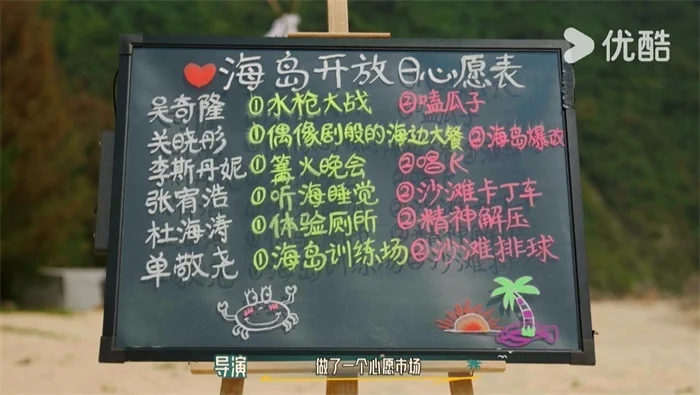 优酷
海岛开放日心愿表
吴奇隆 ①水枪大战 ②嗑瓜子
关晓彤 ①偶像剧般的海边大餐 ②海岛爆改
李斯丹妮 ①篝火晚会 ②唱K
张宥浩 ①听海睡觉 ②沙滩卡丁车
杜海涛 ①体验厕所 ②精神解压
单敬尧 ①海岛训练场 ②沙滩排球
导演 做了一个心愿市场